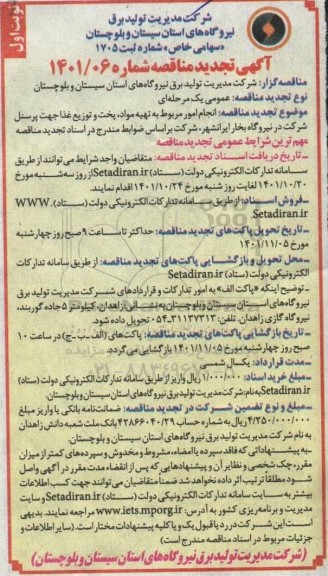 نوبت اول
شرکت مدیریت تولید برق
نیروگاه‌های استان سیستان و بلوچستان
«سهامی خاص» شماره ثبت ۱۷۰۵
آگهی تجدید مناقصه شماره ۱۴۰۱/۰۶
مناقصه‌گزار: شرکت مدیریت تولید برق نیروگاه‌های استان سیستان و بلوچستان
نوع تجدید مناقصه: عمومی یک مرحله‌ای
موضوع تجدید مناقصه: انجام امور مربوط به تهیه مواد، پخت و توزیع غذا جهت پرسنل
شرکت در نیروگاه بخار ایرانشهر، شرکت براساس ضوابط مندرج در اسناد تجدید مناقصه
مهم‌ترین شرایط عمومی تجدید مناقصه
ـ تاریخ دریافت اسناد تجدید مناقصه: متقاضیان واجد شرایط می‌توانند از طریق
سامانه تدارکات الکترونیکی دولت (ستاد) Setadiran.ir از روز سه‌شنبه مورخ
۱۴۰۱/۱۰/۲۰ لغایت روز شنبه مورخ ۱۴۰۱/۱۰/۲۴ اقدام نمایند.
ـ فروش اسناد: از طریق سامانه تدارکات الکترونیکی دولت (ستاد). WWW.
Setadiran.ir
ـ تاریخ تحویل پاکت‌های تجدید مناقصه: حداکثر تا ساعت ۹ صبح روز چهارشنبه
مورخ ۱۴۰۱/۱۱/۰۵
ـ محل تحویل و بازگشایی پاکت‌های تجدید مناقصه: از طریق سامانه تدارکات
الکترونیکی دولت (ستاد) Setadiran.ir
ـ توضیح اینکه «پاکت الف» به امور تدارکات و قراردادهای شرکت مدیریت تولید برق
نیروگاه‌های استان سیستان وبلوچستان به نشانی زاهدان، کیلومتر ۵ جاده گوربند،
نیروگاه گازی زاهدان، تلفن: ۳۱۱۳۷۳۱۳-۰۵۴ تحویل داده شود.
ـ تاریخ بازگشایی پاکت‌های تجدید مناقصه: پاکت‌های (الف-ب-ج) در ساعت ۱۰
صبح روز چهارشنبه مورخ ۱۴۰۱/۱۱/۰۵ بازگشایی می‌گردد.
ـ مدت قرارداد: یکسال شمسی
ـ مبلغ خرید اسناد: ۱/۰۰۰/۰۰۰ ریال واریز از طریق سامانه تدارکات الکترونیکی دولت (ستاد)
Setadiran.ir به نام: شرکت مدیریت تولید برق نیروگاه‌های استان سیستان و بلوچستان
ـ مبلغ و نوع تضمین شرکت در تجدید مناقصه: ضمانت‌نامه بانکی یا واریز مبلغ
۴/۲۵۰/۰۰۰/۰۰۰ ریال به شماره حساب ۴۲۸۶۶۰۴۰/۲۹ بانک ملت شعبه دانش زاهدان
به نام شرکت مدیریت تولید برق نیروگاه‌های استان سیستان و بلوچستان
ـ به پیشنهاداتی که فاقد سپرده یا امضاء، مشروط و مخدوش و سپرده‌های کمتر از میزان
مقرر، چک شخصی و نظایر آن و پیشنهادهایی که پس از انقضاء مدت مقرر در آگهی واصل
شود مطلقاً ترتیب اثر داده نخواهد شد ضمناً متقاضیان می‌توانند جهت کسب اطلاعات
بیشتر به سایت سامانه تدارکات الکترونیکی دولت (ستاد) Setadiran.ir و سایت
مدیریت و برنامه‌ریزی کشور به آدرس: www.iets.mporg.ir مراجعه نمایند. بدیهی
است این شرکت در رد یا قبول یک و یا کلیه پیشنهادات مختار است. (سایر اطلاعات و
جزئیات مربوط در اسناد مناقصه مندرج است)
(شرکت مدیریت تولید برق نیروگاه‌های استان سیستان و بلوچستان)